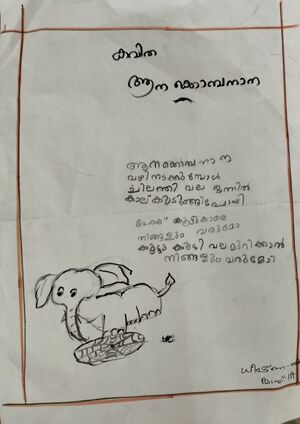 കവിത
ആന ക്കൊമ്പനാന
ആനക്കൊമ്പനാന
വഴിനടക്കുമ്പോൾ
ചിലന്തി വല മുന്നിൽ
കാല് കുടുങ്ങിപോയി
ഹേയ് കൂട്ടുകാരെ
നിങ്ങളും വരുമോ
കൂട്ടു കൂടി വല മുറിക്കാൻ
നിങ്ങളും വരുമോ